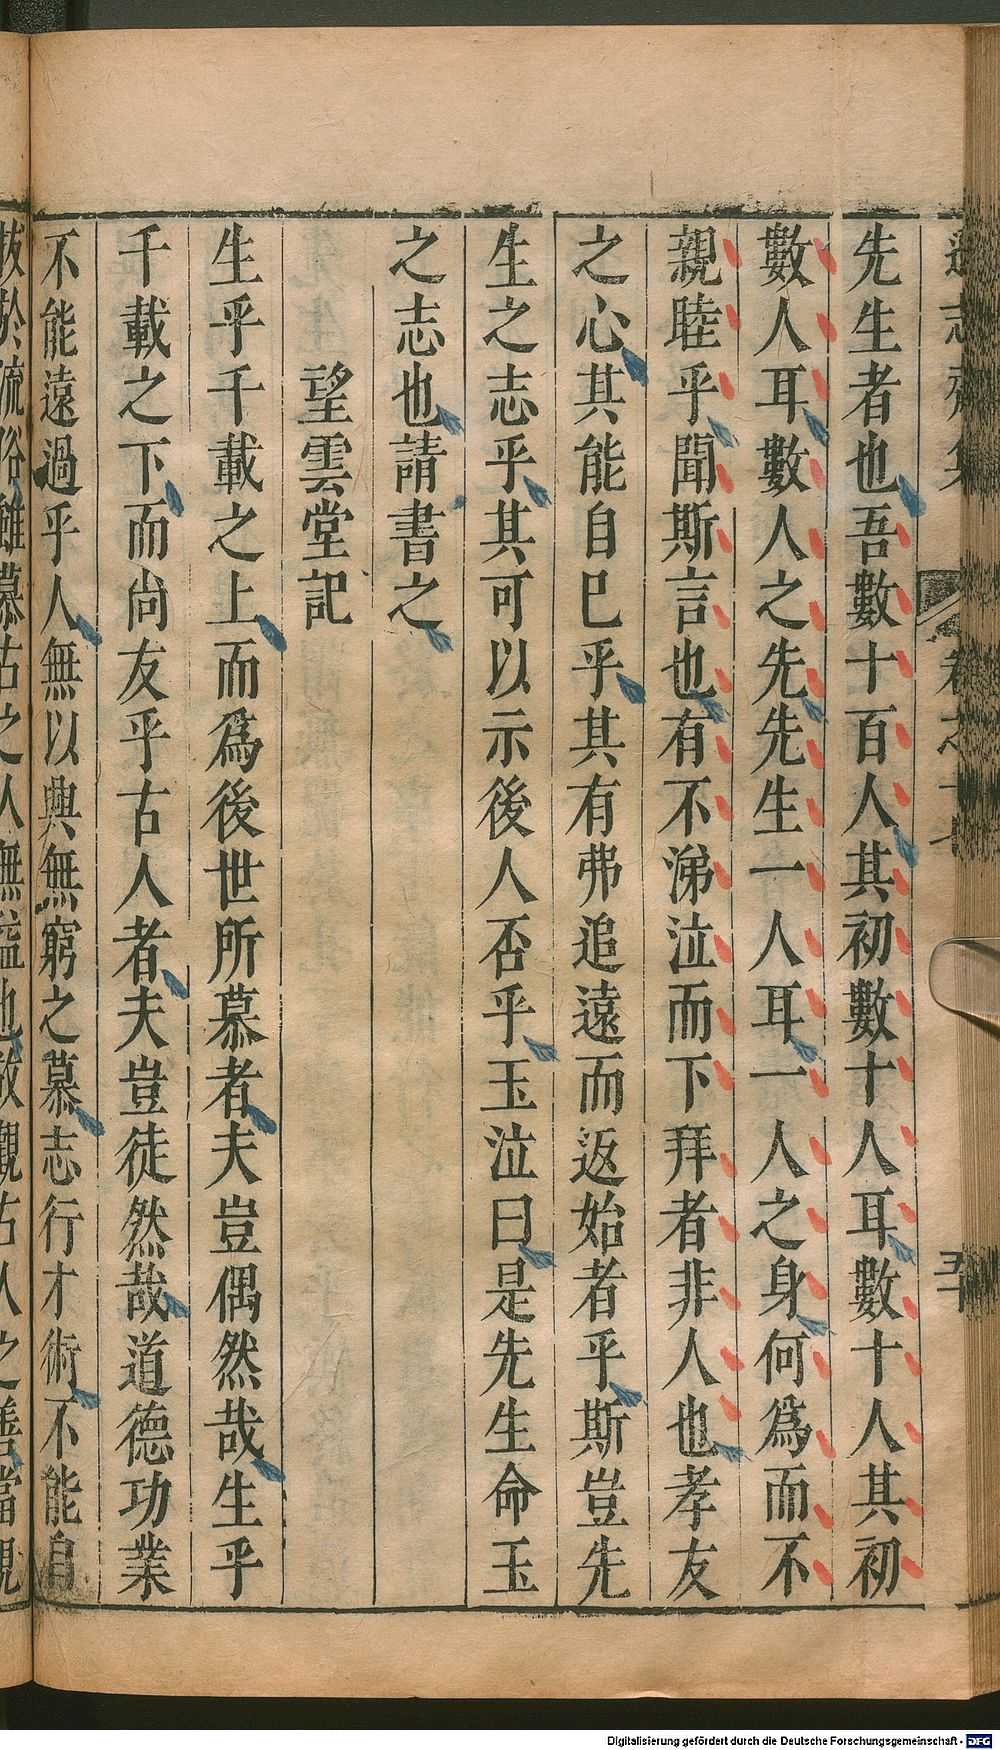 先生者也吾數十百人其初數十人耳數十人其初
數人耳數人之先先生一人耳一人之身何爲而不
親睦乎聞斯言也有不涕泣而下拜者非人也孝友
之心其能自已乎其有弗追遠而返始者乎斯豈先
生之志乎其可以示後人否乎玉泣曰是先生命玉
之志也請書之
望雲堂記
生乎千載之上而爲後世所慕者夫豈偶然哉生乎
千載之下而尙友乎古人者夫豈徒然哉道德功業
不能遠過乎人無以興無窮之慕志行才術不能自
拔於流俗雖慕古之人無益也故觀古人之善當視
Digitalisierung gefördert durch die Deutsche Forschungsgemeinschaft - DFG